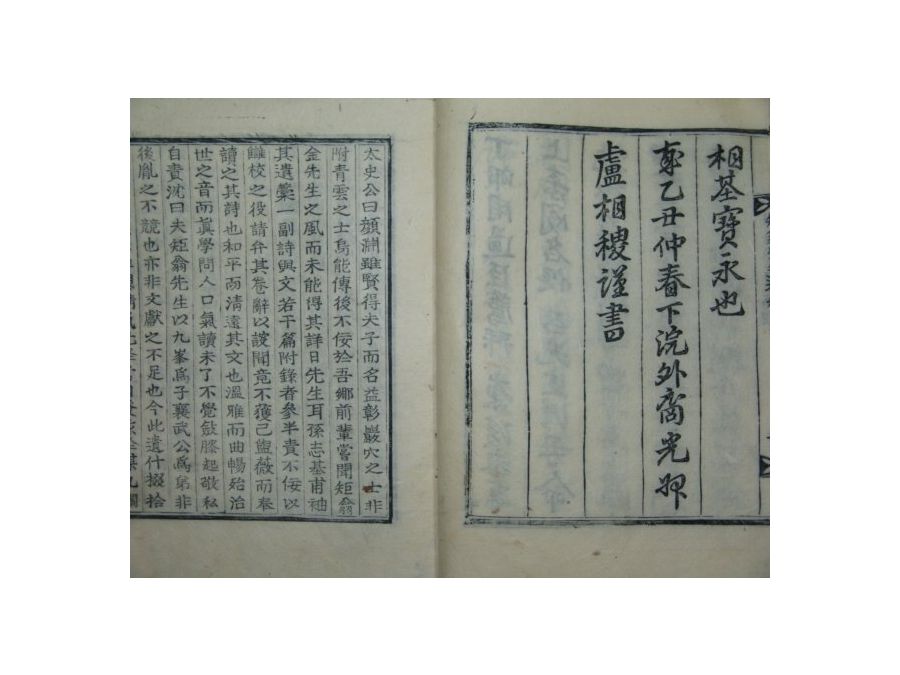 相基寶永也
乙丑仲春下浣外裔光州
盧相稷謹書
太史公曰顔淵雖賢得夫子而名益彰巖穴之士非
附青雲之士烏能傳後不佞於吾鄉前輩嘗聞矩翁
金先生之風而未能得其詳日先生耳孫志基甫袖
其遺藁一副詩與文若干篇附錄者參半責不佞以
讎校之役請弁其卷辭以謏聞竟不獲已盥薇而奉
讀之其詩也和平而清遠其文也溫雅而曲暢殆治
世之音而眞學問人口氣讀未了不覺斂膝起敬私
自責沈曰夫矩翁先生以九峯爲子襄武公爲弟非
後胤之不競也亦非文獻之不足也今此遺什掇拾